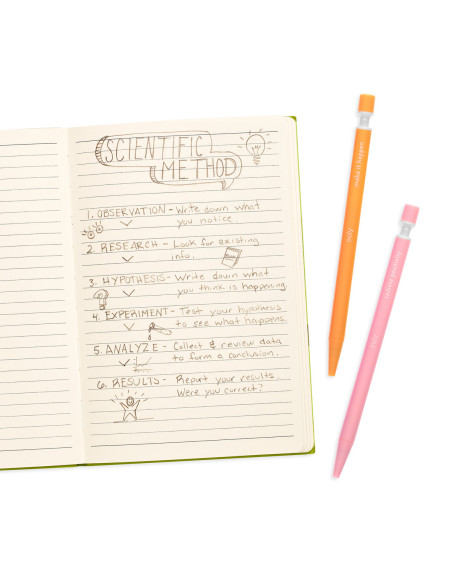 SCIENTIFIC
METHOD
1. OBSERVATION - Write down what
you notice
2. RESEARCH - Look for existing
info.
3. HYPOTHESIS - Write down what
you think is happening
4. EXPERIMENT - Test your hypothesis
to see what happens
5. ANALYZE - Collect & review data
to form a conclusion.
6. RESULTS - Report your results
Were you correct?
make it happen